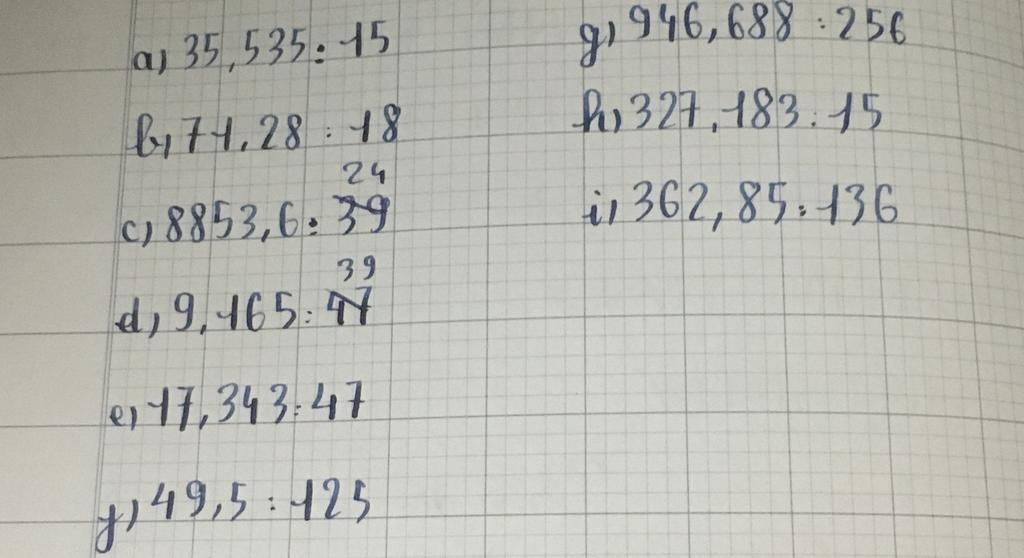 a) 35,535 : 15
b) 71,28 : 18
24
c) 8853,6 : 39
39
d) 9,165 : 47
e) 17,343 : 47
f) 49,5 : 125
g) 946,688 : 256
h) 327,183 : 15
i) 362,85 : 136